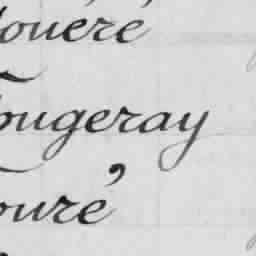 ouéré
ougeray
ouré